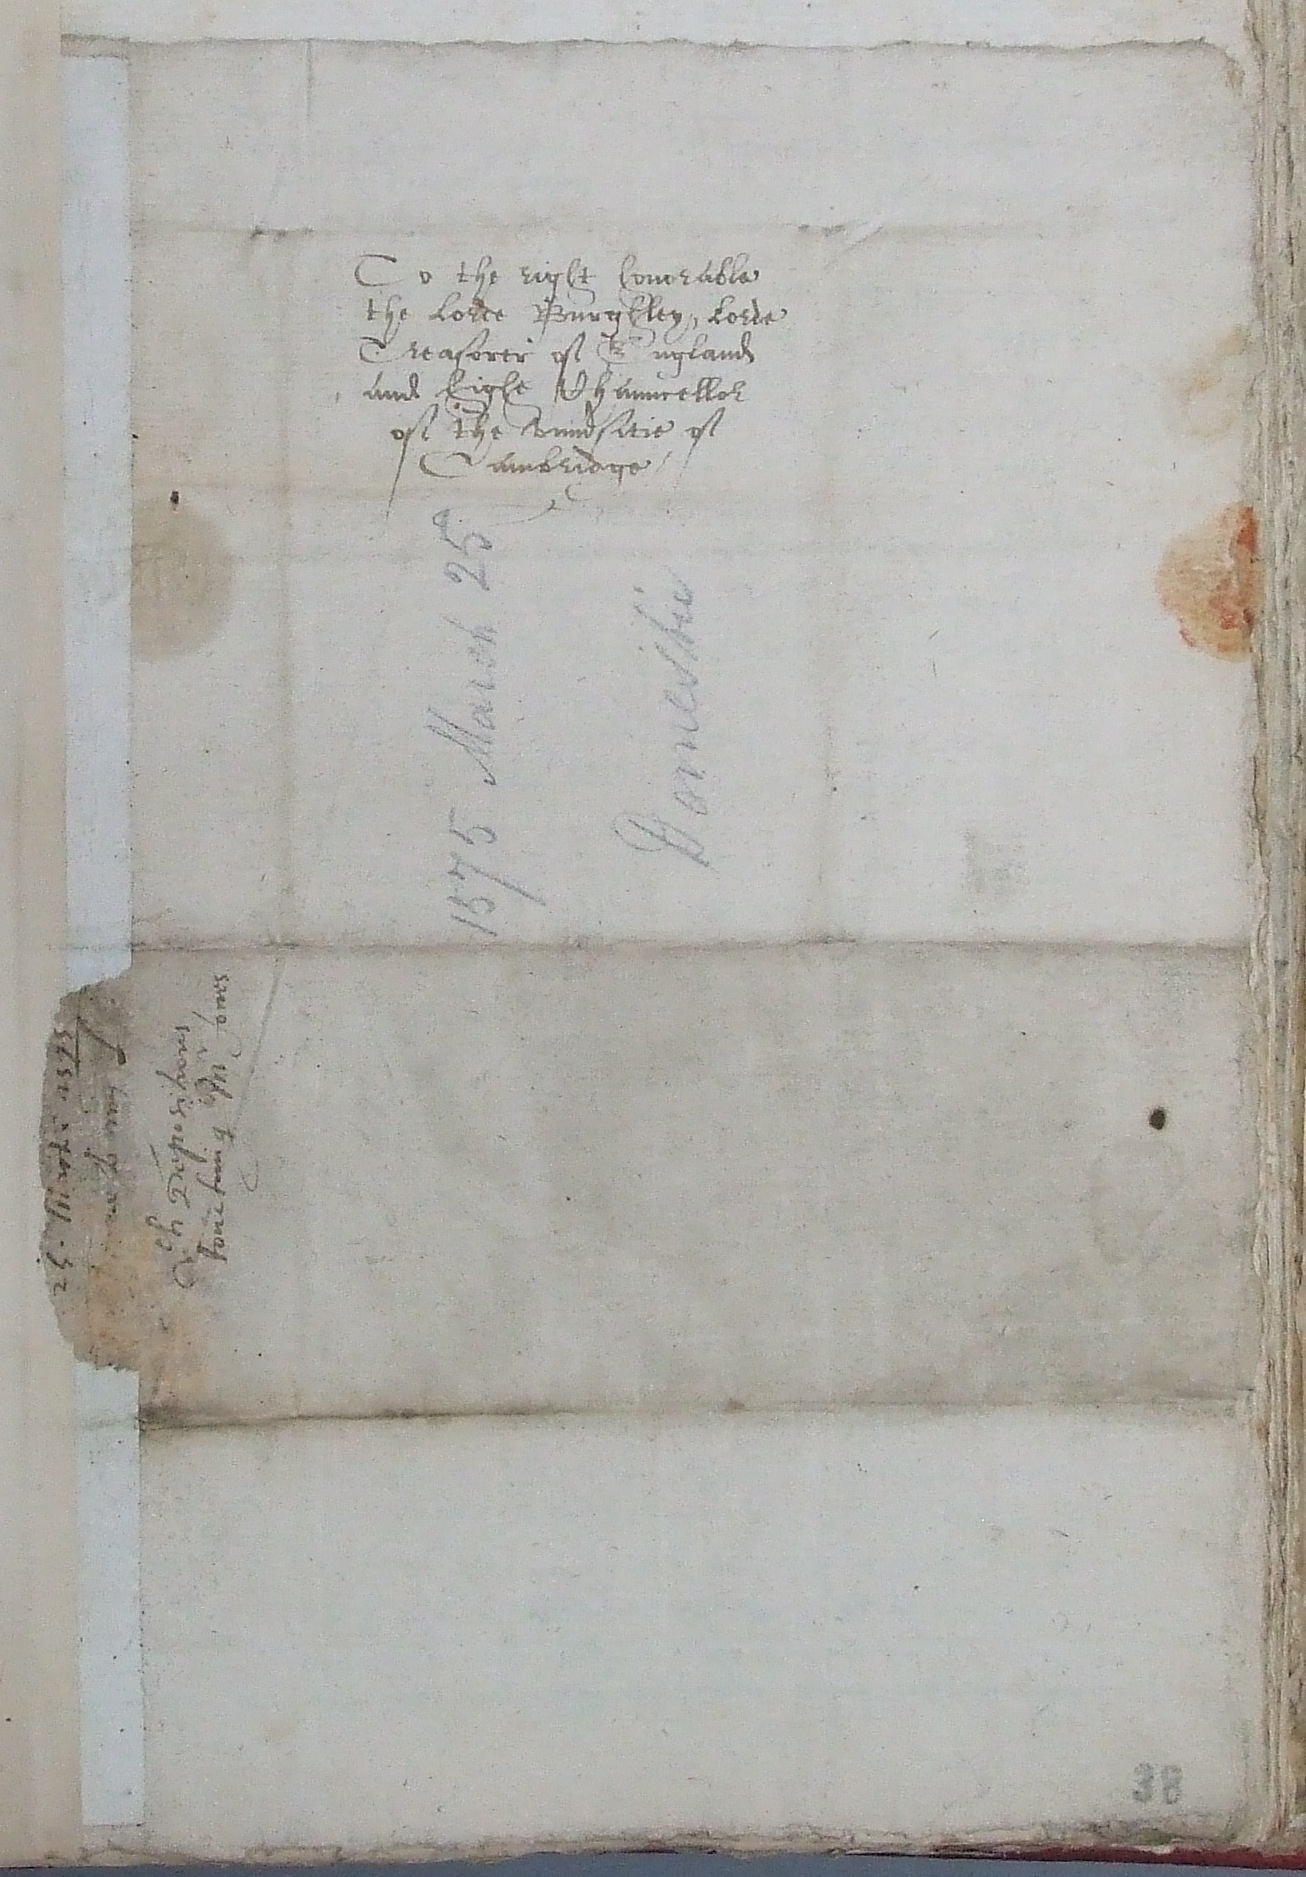 To the right honorable
the Lorde Burghley, Lorde
Treasorer of England
and highe Chauncellor
of the vniuersitie of
Cambridge
1575 March 25
Domestic
25. Martii. 1575
wth Depositions
touching Mr Jones
38